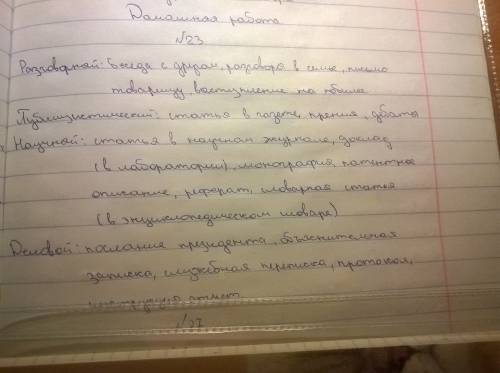 Домашняя работа
№23
Разговорный: беседа с другом, разговор в семье, письмо
товарищу, выступление на юбилее
Публицистический: статья в газете, прения, дебаты
Научный: статья в научном журнале, доклад
(в лаборатории), монография, патентное
описание, реферат, словарная статья
(в энциклопедическом словаре)
Деловой: послание президента, объяснительная
записка, служебная переписка, протокол,
инструкция, отчет.